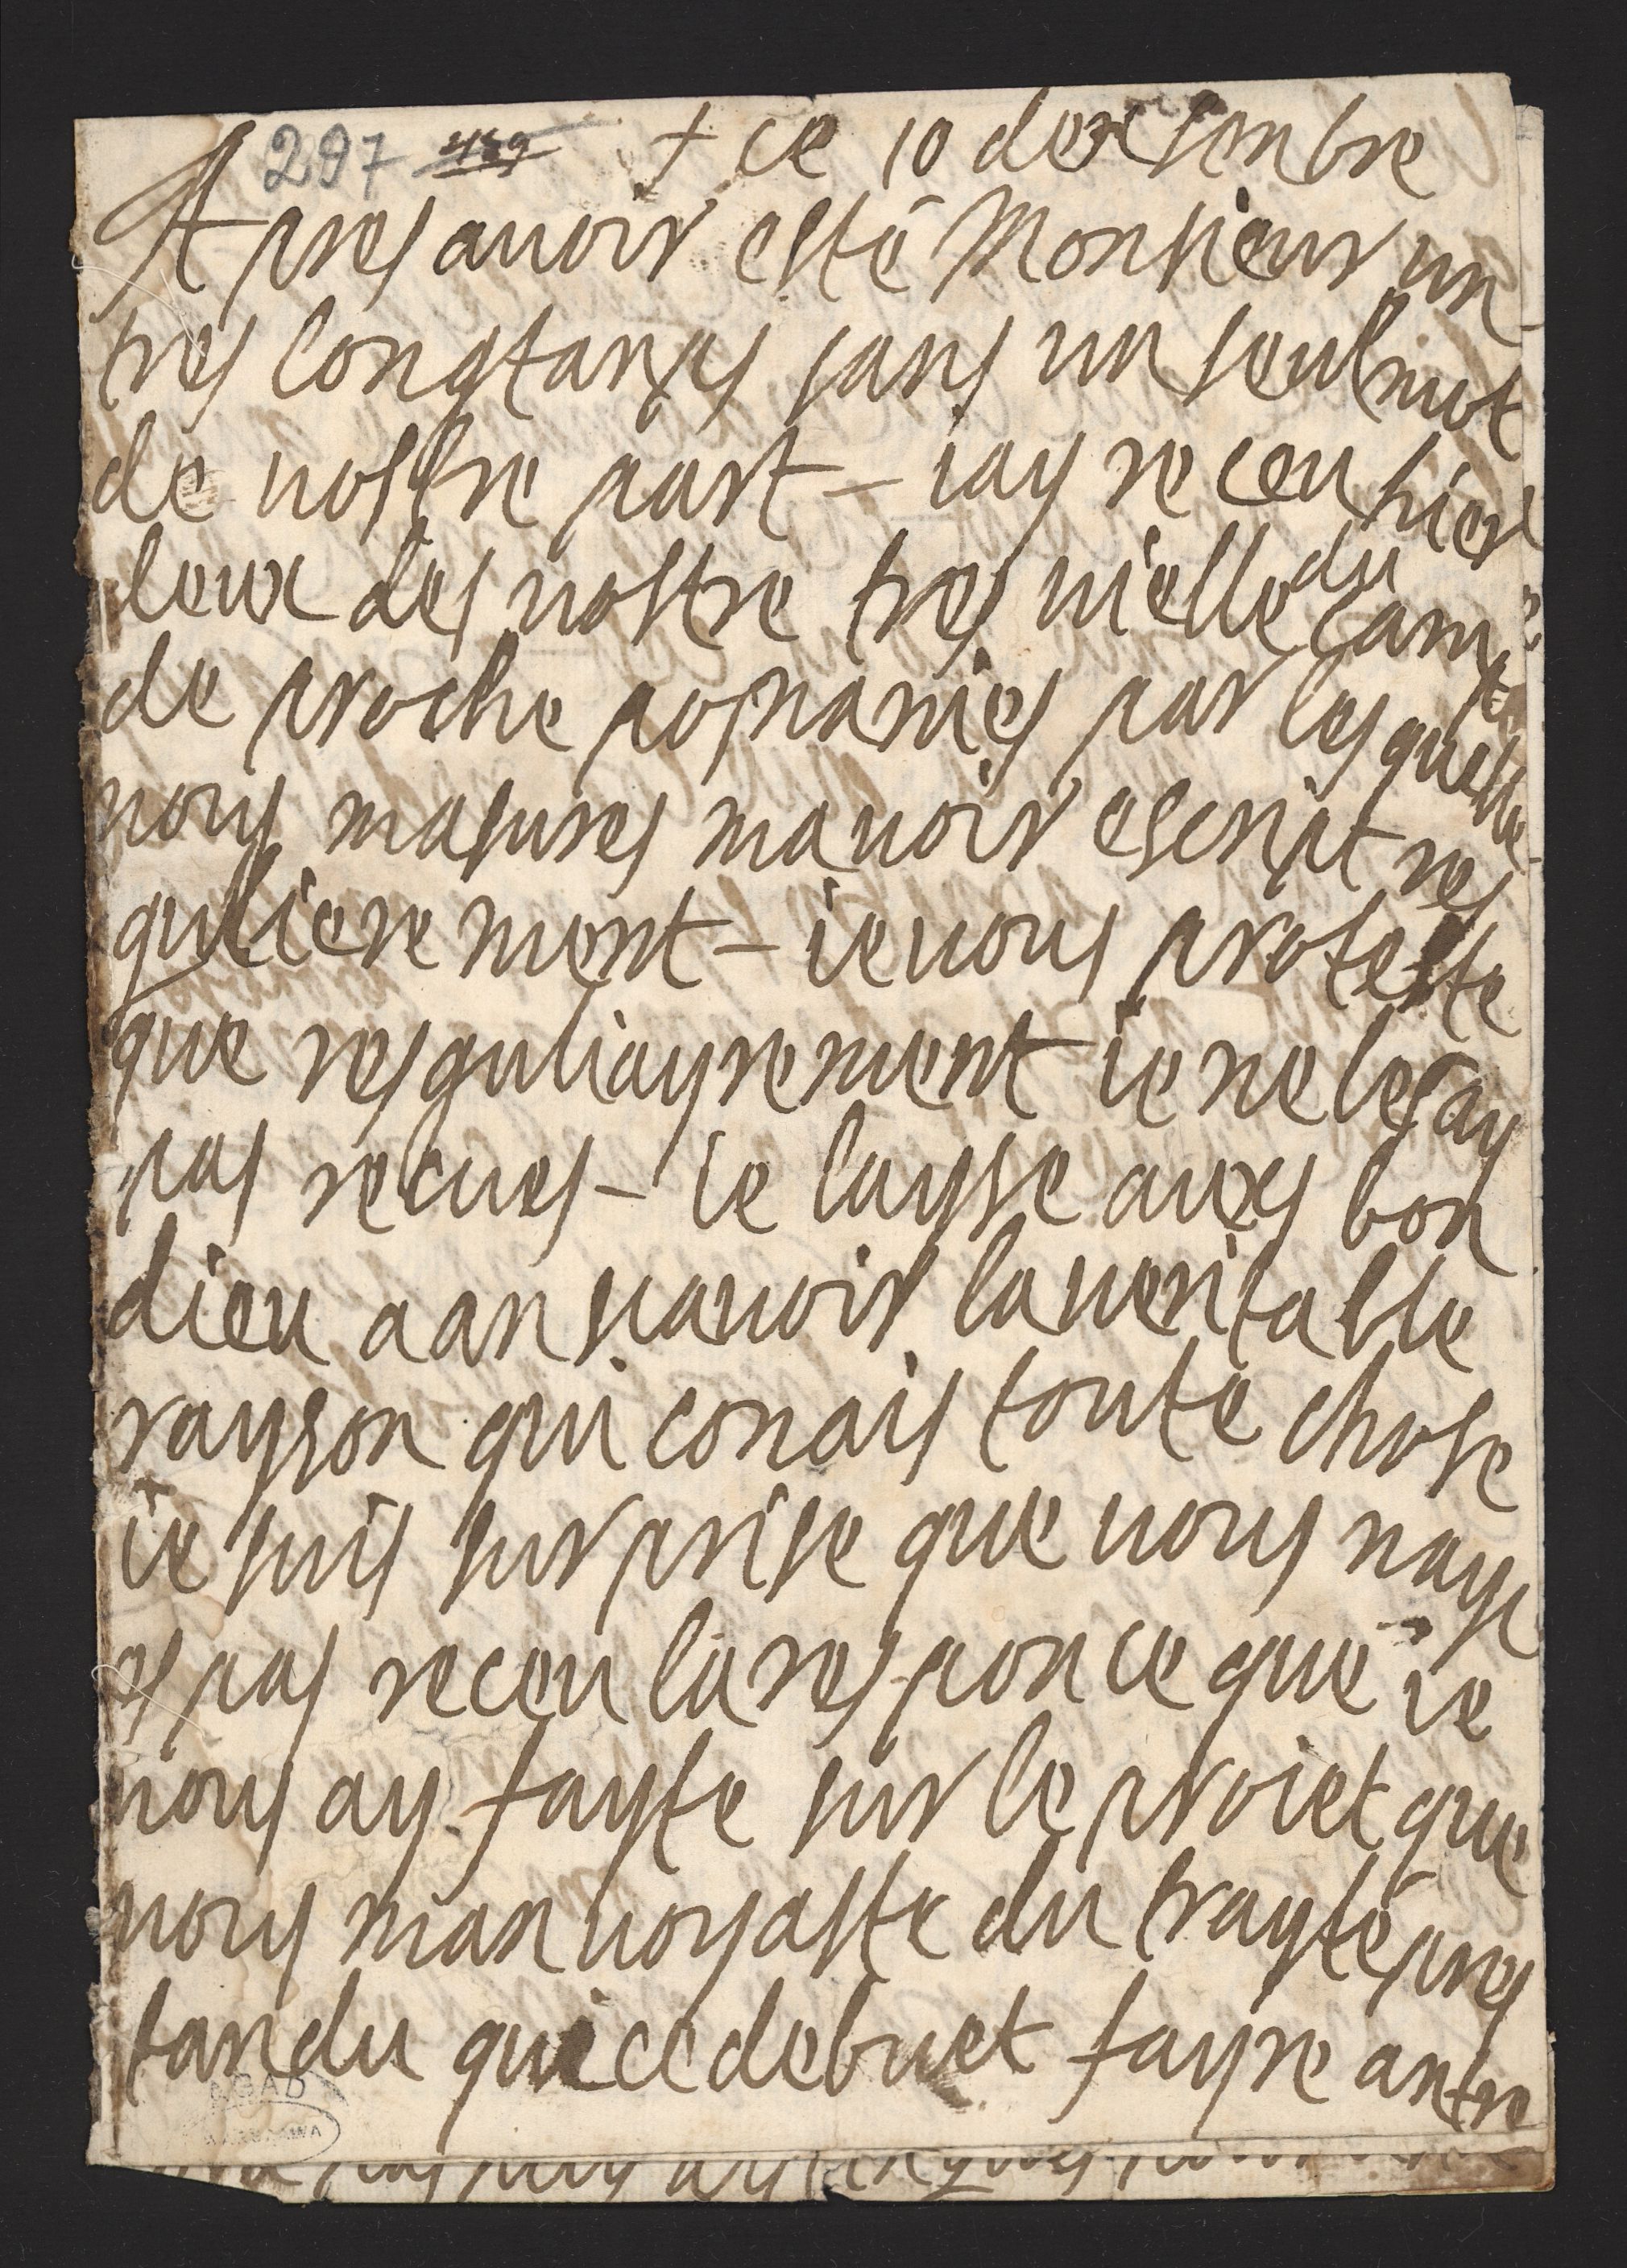 297 489 + ce 10 dexsenbre
Apres auoir esté Monsieur un
tres longtanps sans un seul mot
de uostre part – iay receu hier
deux des uostre tres uielle du camp
de proche posnanies par lesquelle
uous masures mauoir escript res
gulierement – ie uous proteste
que resguliayrement ie ne les ay
pas recues – ie laysse aux bon
dieu a an sauoir la ueritable
rayson qui conais toute chose
ie suis surprise que uous nay
es pas receu la responce que ie
uous ay fayte sur le proiet que
uous man uoyaste du trayté pres
tandu qui ce debuet fayre antre
AGAD
WARSZAWA